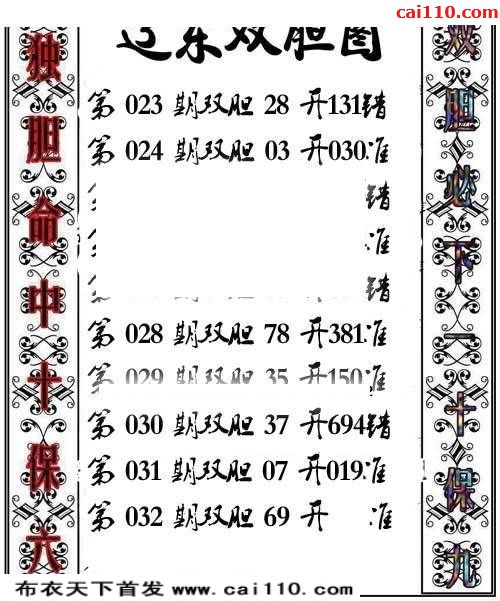 cai110.com
辽东双胆图
独胆命中十保六
第 023 期双胆 28 开131错
第 024 期双胆 03 开030准
错
准
错
第 028 期双胆 78 开381准
第 029 期双胆 35 开150准
第 030 期双胆 37 开694错
第 031 期双胆 07 开019准
第 032 期双胆 69 开 准
双胆必下一十保九
布衣天下首发 www.cai110.com